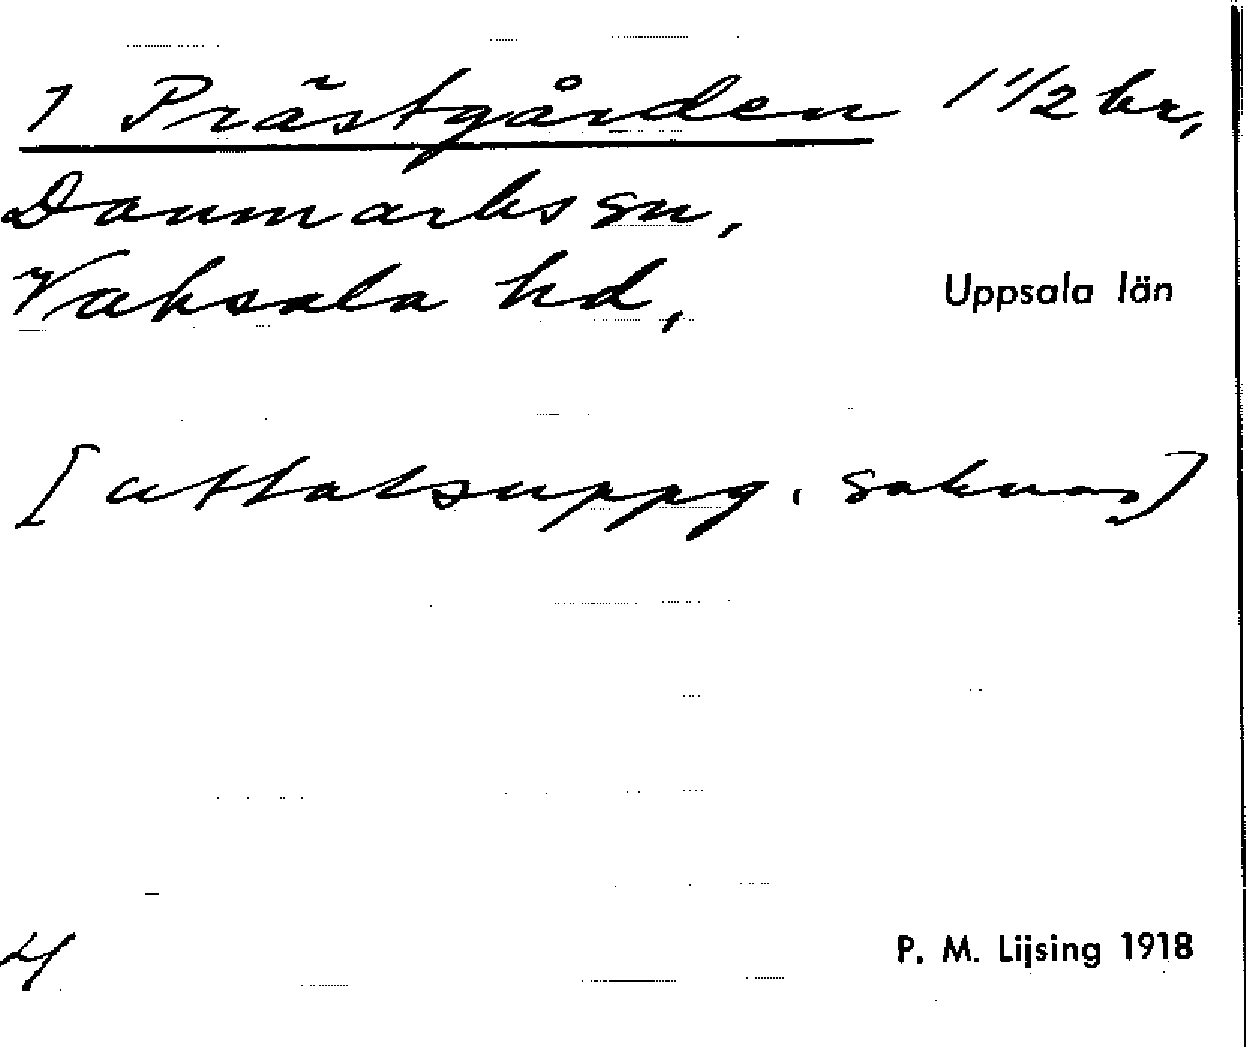 1 Prästgården 1 1/2 br,
Danmarks sn,
Vaksala hd,
Uppsala län
[uttalsuppg. saknas]
4
P. M. Lijsing 1918